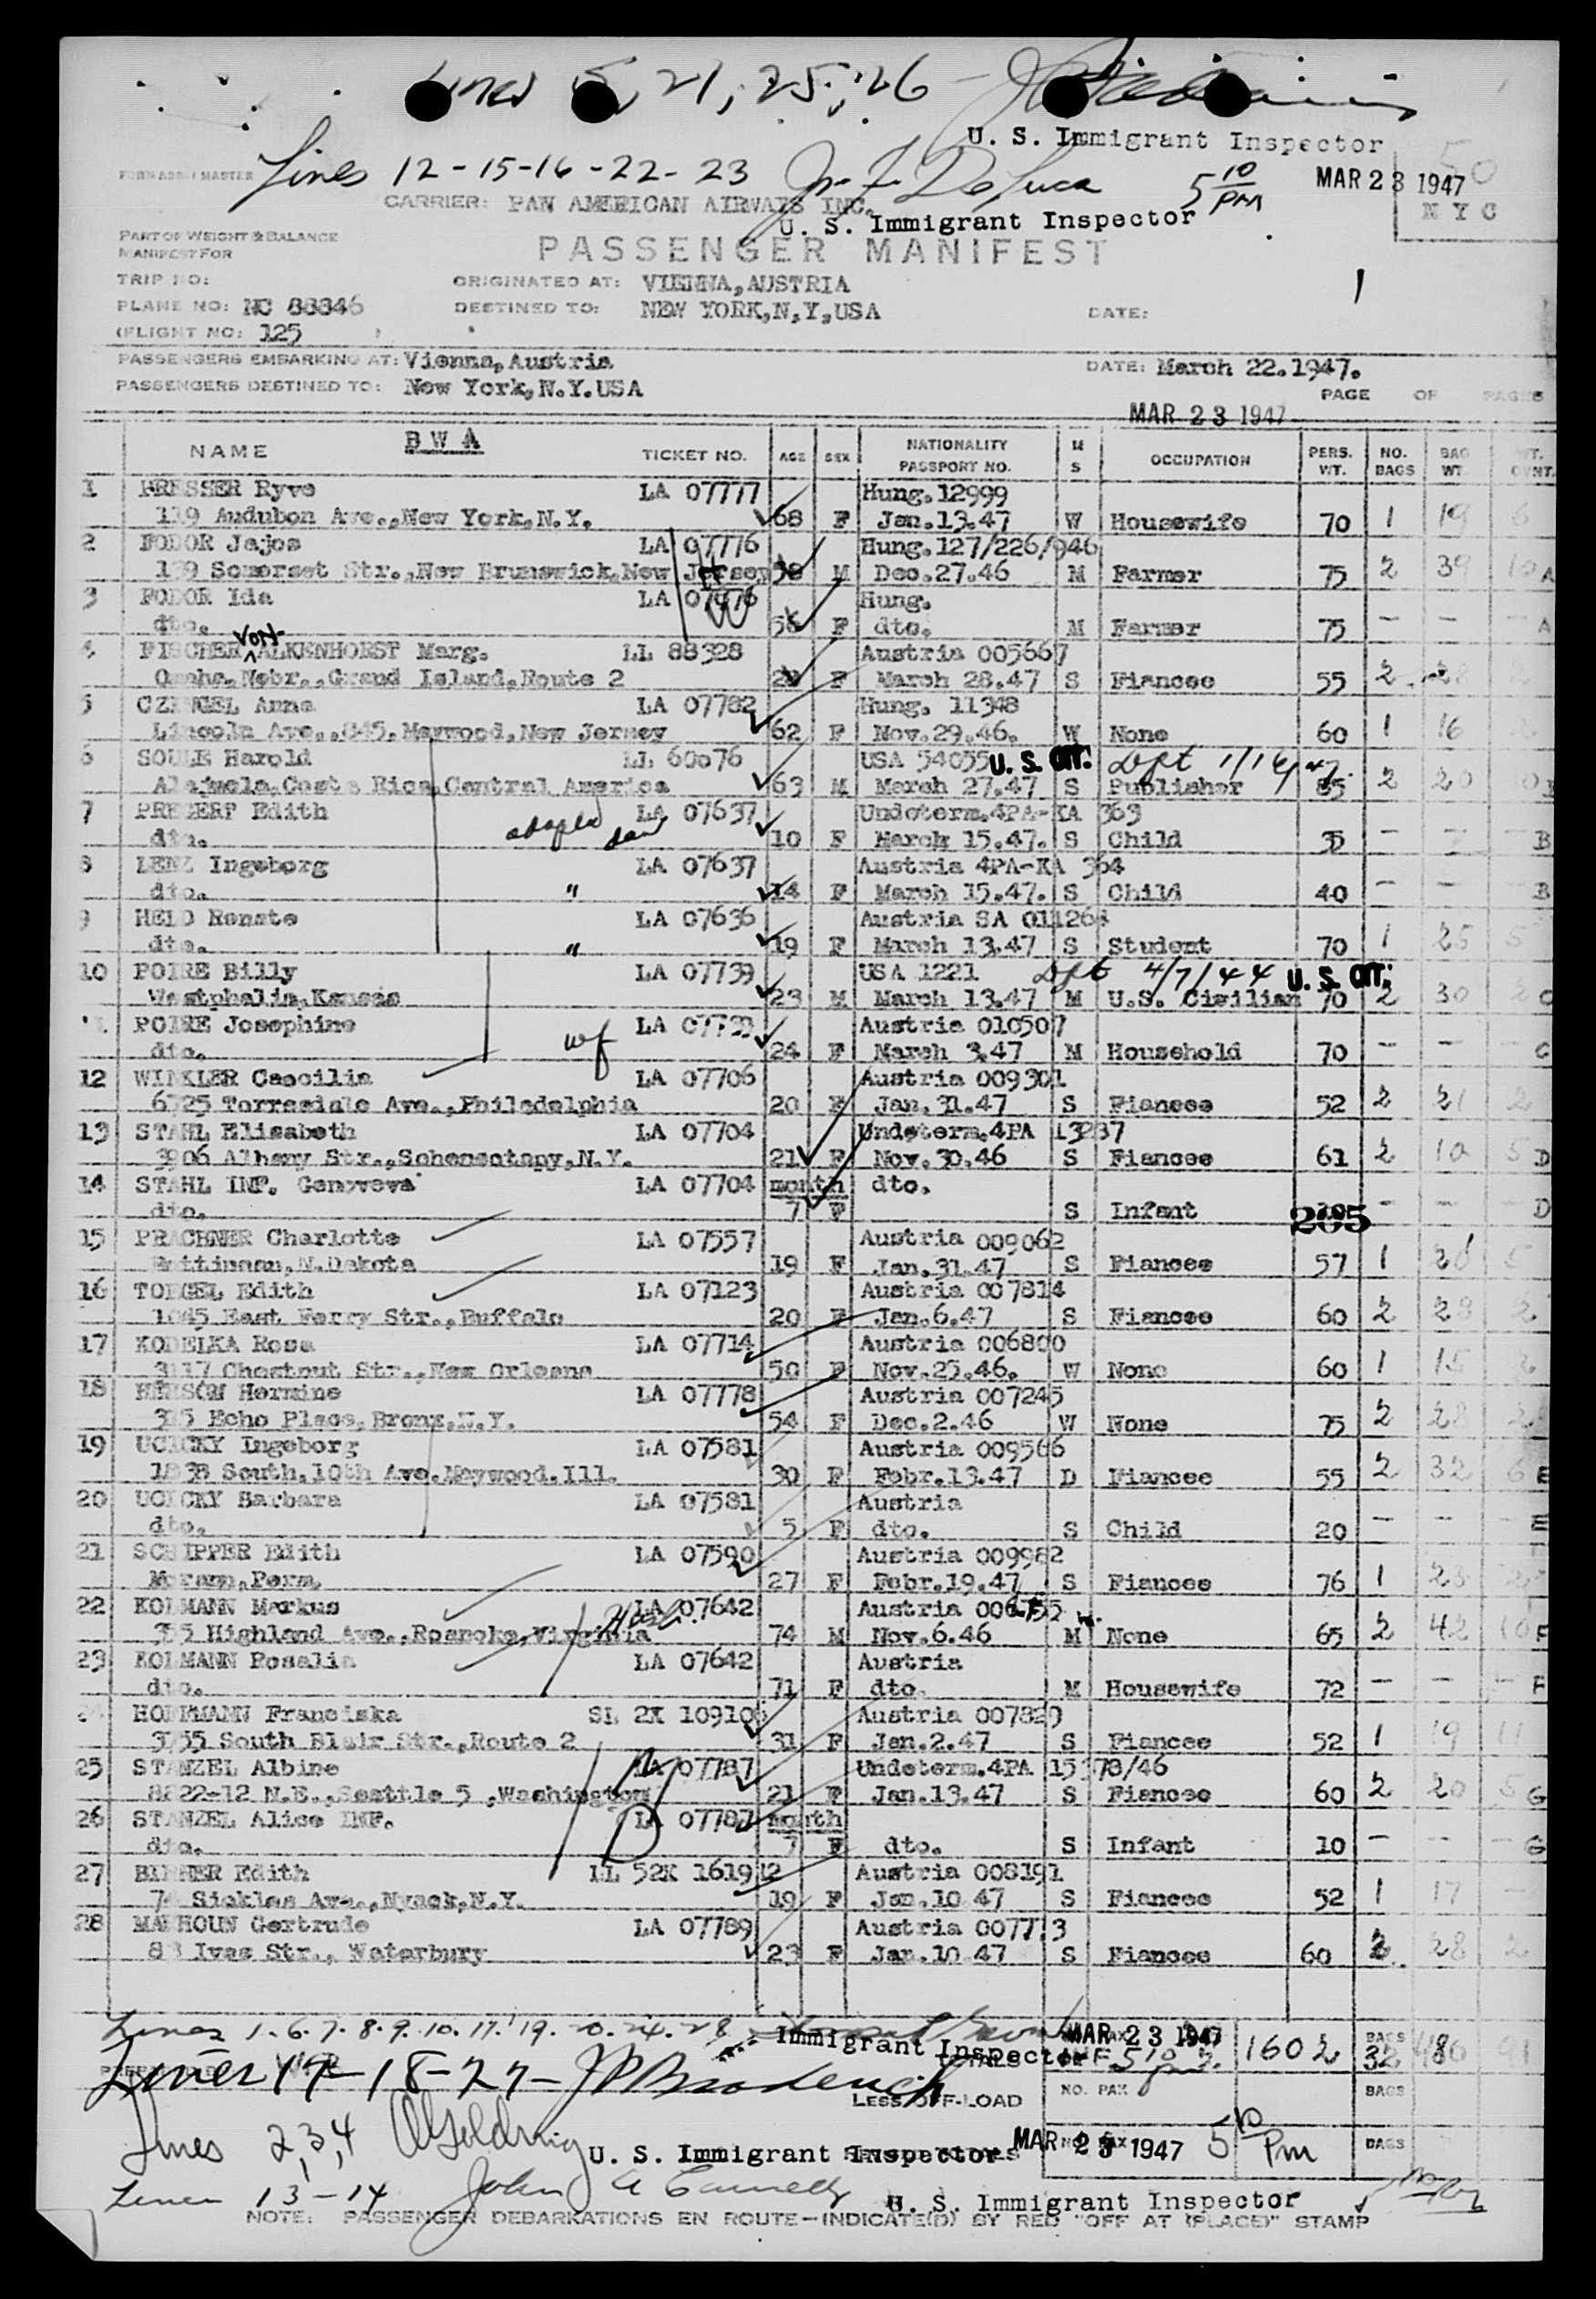 Lines 5, 21, 25, 26 -
U. S. Immigrant Inspector
Lines 12-15-16-22-23 5 10 PM MAR 23 1947
NYC
CARRIER: PAN AMERICAN AIRWAYS INC.
U. S. Immigrant Inspector
PART OF WEIGHT & BALANCE
MANIFEST FOR
PASSENGER MANIFEST
TRIP NO: ORIGINATED AT: VIENNA, AUSTRIA
PLANE NO: NC 88846 DESTINED TO: NEW YORK, N,Y,USA DATE:
(FLIGHT NO: 125 )
PASSENGERS EMBARKING AT: Vienna, Austria DATE: March 22.1947.
PASSENGERS DESTINED TO: New York, N.Y.USA PAGE OF PAGES
MAR 23 1947
NAME B W A TICKET NO. AGE SEX NATIONALITY PASSPORT NO. M S OCCUPATION PERS. WT. NO. BAGS BAG WT.
1 PRESSER Ryve LA 07777 Hung.12999
119 Audubon Ave.,New York,N.Y. 68 F Jan.13.47 W Housewife 70 1 19 6
2 FODOR Jajos LA 07776 Hung.127/226/946
139 Somerset Str.,New Brunswick,New Jersey 58 M Dec.27.46 M Farmer 75 2 39 10 A
3 FODOR Ida LA 07776 Hung.
dto. F dto. M Farmer 75 - - - A
4 FISCHER von ALKENHORST Marg. LL 88328 Austria 005667
Omaha,Nebr.,Grand Island,Route 2 F March 28.47 S Fiancee 55 2 28
5 Anna LA 07782 Hung. 11348
Lincoln Ave.,845,Maywood,New Jersey 62 F Nov.29.46. W None 60 1 16
6 SOULE Harold LL 60076 USA 54055 U. S. CIT. Dpt
Alajuela,Costa Rica,Central America 63 M March 27.47 S Publisher 85 2 20
7 Edith LA 07637 Undeterm.4PA-KA 363
dto. 10 F March 15.47. S Child 35 - - - B
8 LENZ Ingeborg LA 07637 Austria 4PA-KA 364
dto. " 14 F March 15.47. S Child 40 - - - B
9 HELD Renate LA 07636 Austria SA 011264
dto. " 19 F March 13.47 S Student 70 1 25 5
10 POIRE Billy LA 07739 USA 1221 Dpt 4/7/44 U. S. CIT.
Westphalia,Kansas 23 M March 13.47 M U.S. Civilian 70 2 30 2 C
11 POIRE Josephine wf LA 07739 Austria 010507
dto. 24 F March 3.47 M Household 70 - - - C
12 WINKLER Caecilia LA 07706 Austria 009301
6325 Torresdale Ave.,Philadelphia 20 F Jan.31.47 S Fiancee 52 2 21 2
13 STAHL Elisabeth LA 07704 Undeterm.4PA 13287
3906 Albany Str.,Schenectapy,N.Y. 21 F Nov.30.46 S Fiancee 61 2 10 5 D
14 STAHL INF. Genoveva LA 07704 month dto.
dto. 7 F S Infant - - - D
15 PRACHNER Charlotte LA 07557 Austria 009062
Bottineau,N.Dakota 19 F Jan.31.47 S Fiancee 57 1 26 5
16 Edith LA 07123 Austria 007814
1045 East Ferry Str.,Buffalo 20 F Jan.6.47 S Fiancee 60 2 29 2
17 KODELKA Rosa LA 07714 Austria 006800
3117 Chestnut Str.,New Orleans 50 F Nov.25.46. W None 60 1 15 2
18 Hermine LA 07778 Austria 007245
Echo Place,Bronx,N.Y. 54 F Dec.2.46 W None 75 2 28
19 UCICKY Ingeborg LA 07581 Austria 009566
1838 South.10th Ave.Maywood.Ill. 30 F Febr.13.47 D Fiancee 55 2 32 6 E
20 UCICKY Barbara LA 07581 Austria
dto. 5 F dto. S Child 20 - - - E
21 SCHIPPER Edith LA 07590 Austria 009982
27 F Febr.19.47 S Fiancee 76 1
22 KOLMANN Markus LA 07642 Austria
Highland Ave.,Roanoke,Virginia 74 M Nov.6.46 M None 65 2 42 10 F
23 KOLMANN Rosalia LA 07642 Austria
dto. 71 F dto. M Housewife 72 - - - F
Franciska SL 2X 109106 Austria 007829
3755 South Blair Str.,Route 2 31 F Jan.2.47 S Fiancee 52 1 19 11
25 STANZEL Albine LA 07787 Undeterm.4PA 15378/46
8822-12 N.E.,Seattle 5 ,Washington 21 F Jan.13.47 S Fiancee 60 2 20 5 G
26 STANZEL Alice INF. LA 07787 month
dto. 7 F dto. S Infant 10 - - - G
27 Edith LL 52X 161912 Austria 008191
Sickles Ave.,Nyack,N.Y. 19 F Jan.10 47 S Fiancee 52 1 17 -
28 Gertrude LA 07789 Austria 007773
Ives Str., Waterbury 23 F Jan.10 47 S Fiancee 60 2 28 2
Lines 1.6.7.8.9.10.11.19.20.24.28
Immigrant Inspector MAR 23 1947 1602 BAGS 32 486 91
Lines 17-18-27-
LESS OFF-LOAD NO. PAX BAGS
Lines 2,3,4 U. S. Immigrant Inspector MAR 23 1947 5 10 Pm BAGS
Lines 13-14 U. S. Immigrant Inspector
NOTE: PASSENGER DEBARKATIONS EN ROUTE-INDICATE(D) BY RED "OFF AT (PLACE)" STAMP